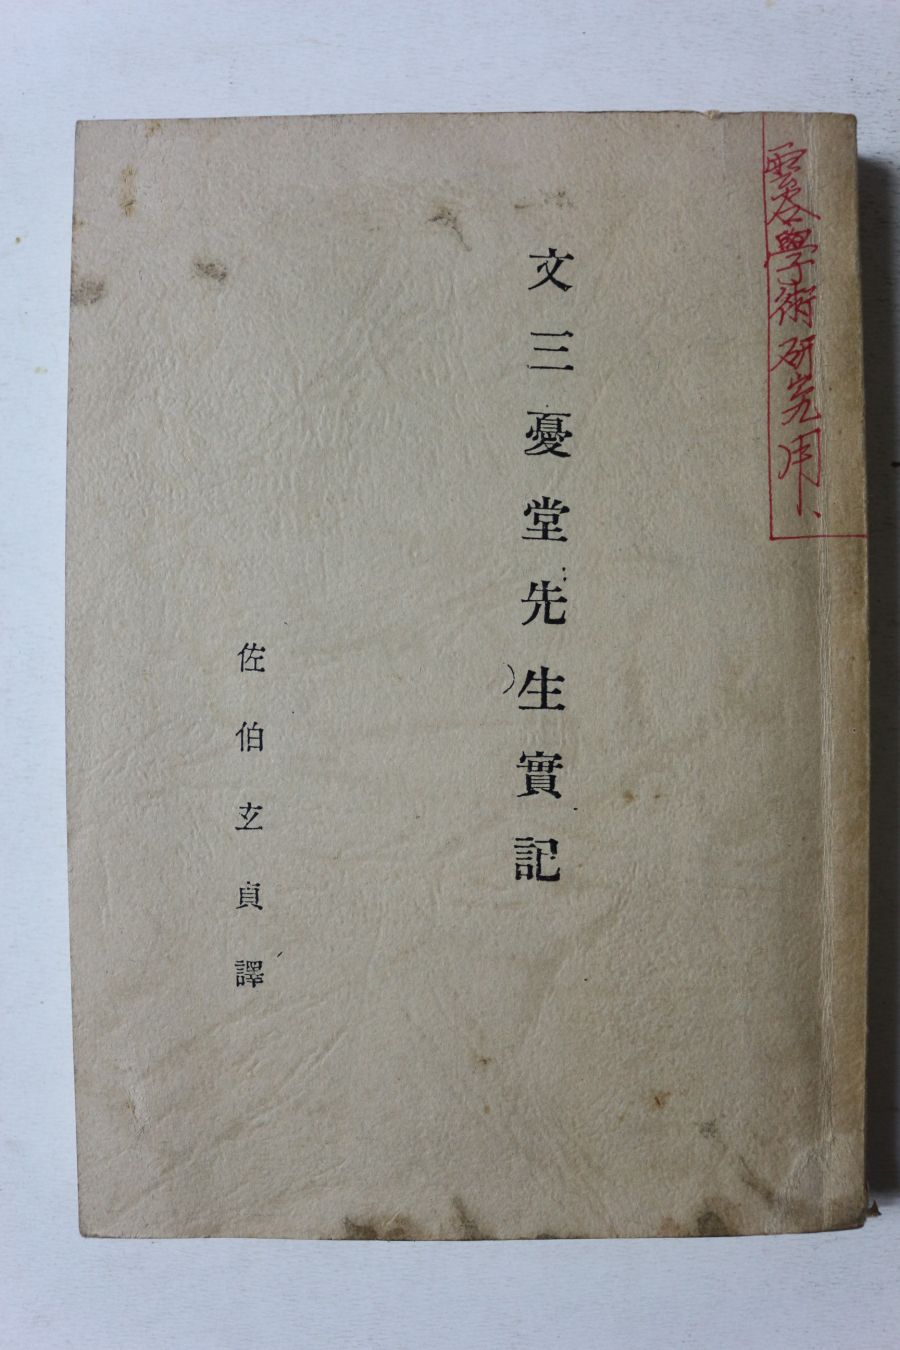 雲谷學術研究用
文三憂堂先生實記
佐伯玄貞譯